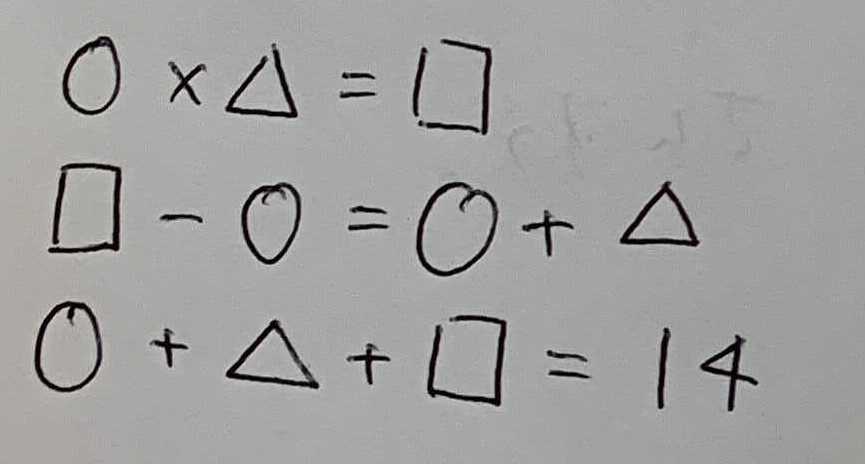 ○ × △ = □
□ - ○ = ○ + △
○ + △ + □ = 14